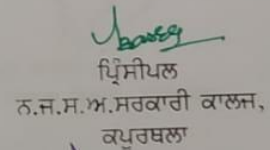 ਪ੍ਰਿੰਸੀਪਲ
ਨ.ਜ.ਸ.ਅ.ਸਰਕਾਰੀ ਕਾਲਜ,
ਕਪੂਰਥਲਾ